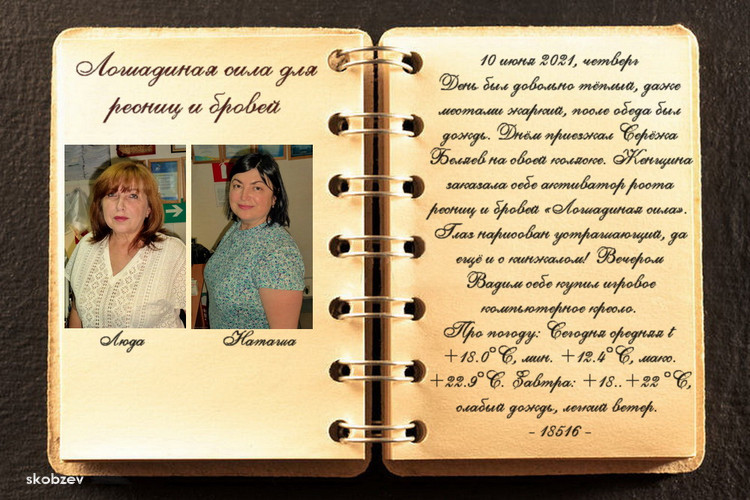 Лошадиная сила для
ресниц и бровей
Люда
Наташа
10 июня 2021, четверг
День был довольно тёплый, даже
местами жаркий, после обеда был
дождь. Днём приезжал Серёжа
Беляев на своей коляске. Женщина
заказала себе активатор роста
ресниц и бровей «Лошадиная сила».
Глаз нарисован устрашающий, да
ещё и с кинжалом! Вечером
Вадим себе купил игровое
компьютерное кресло.
Про погоду: Сегодня средняя t
+18.0°C, мин. +12.4°C, макс.
+22.9°C. Завтра: +18..+22 °C,
слабый дождь, легкий ветер.
- 18516 -
skobzev